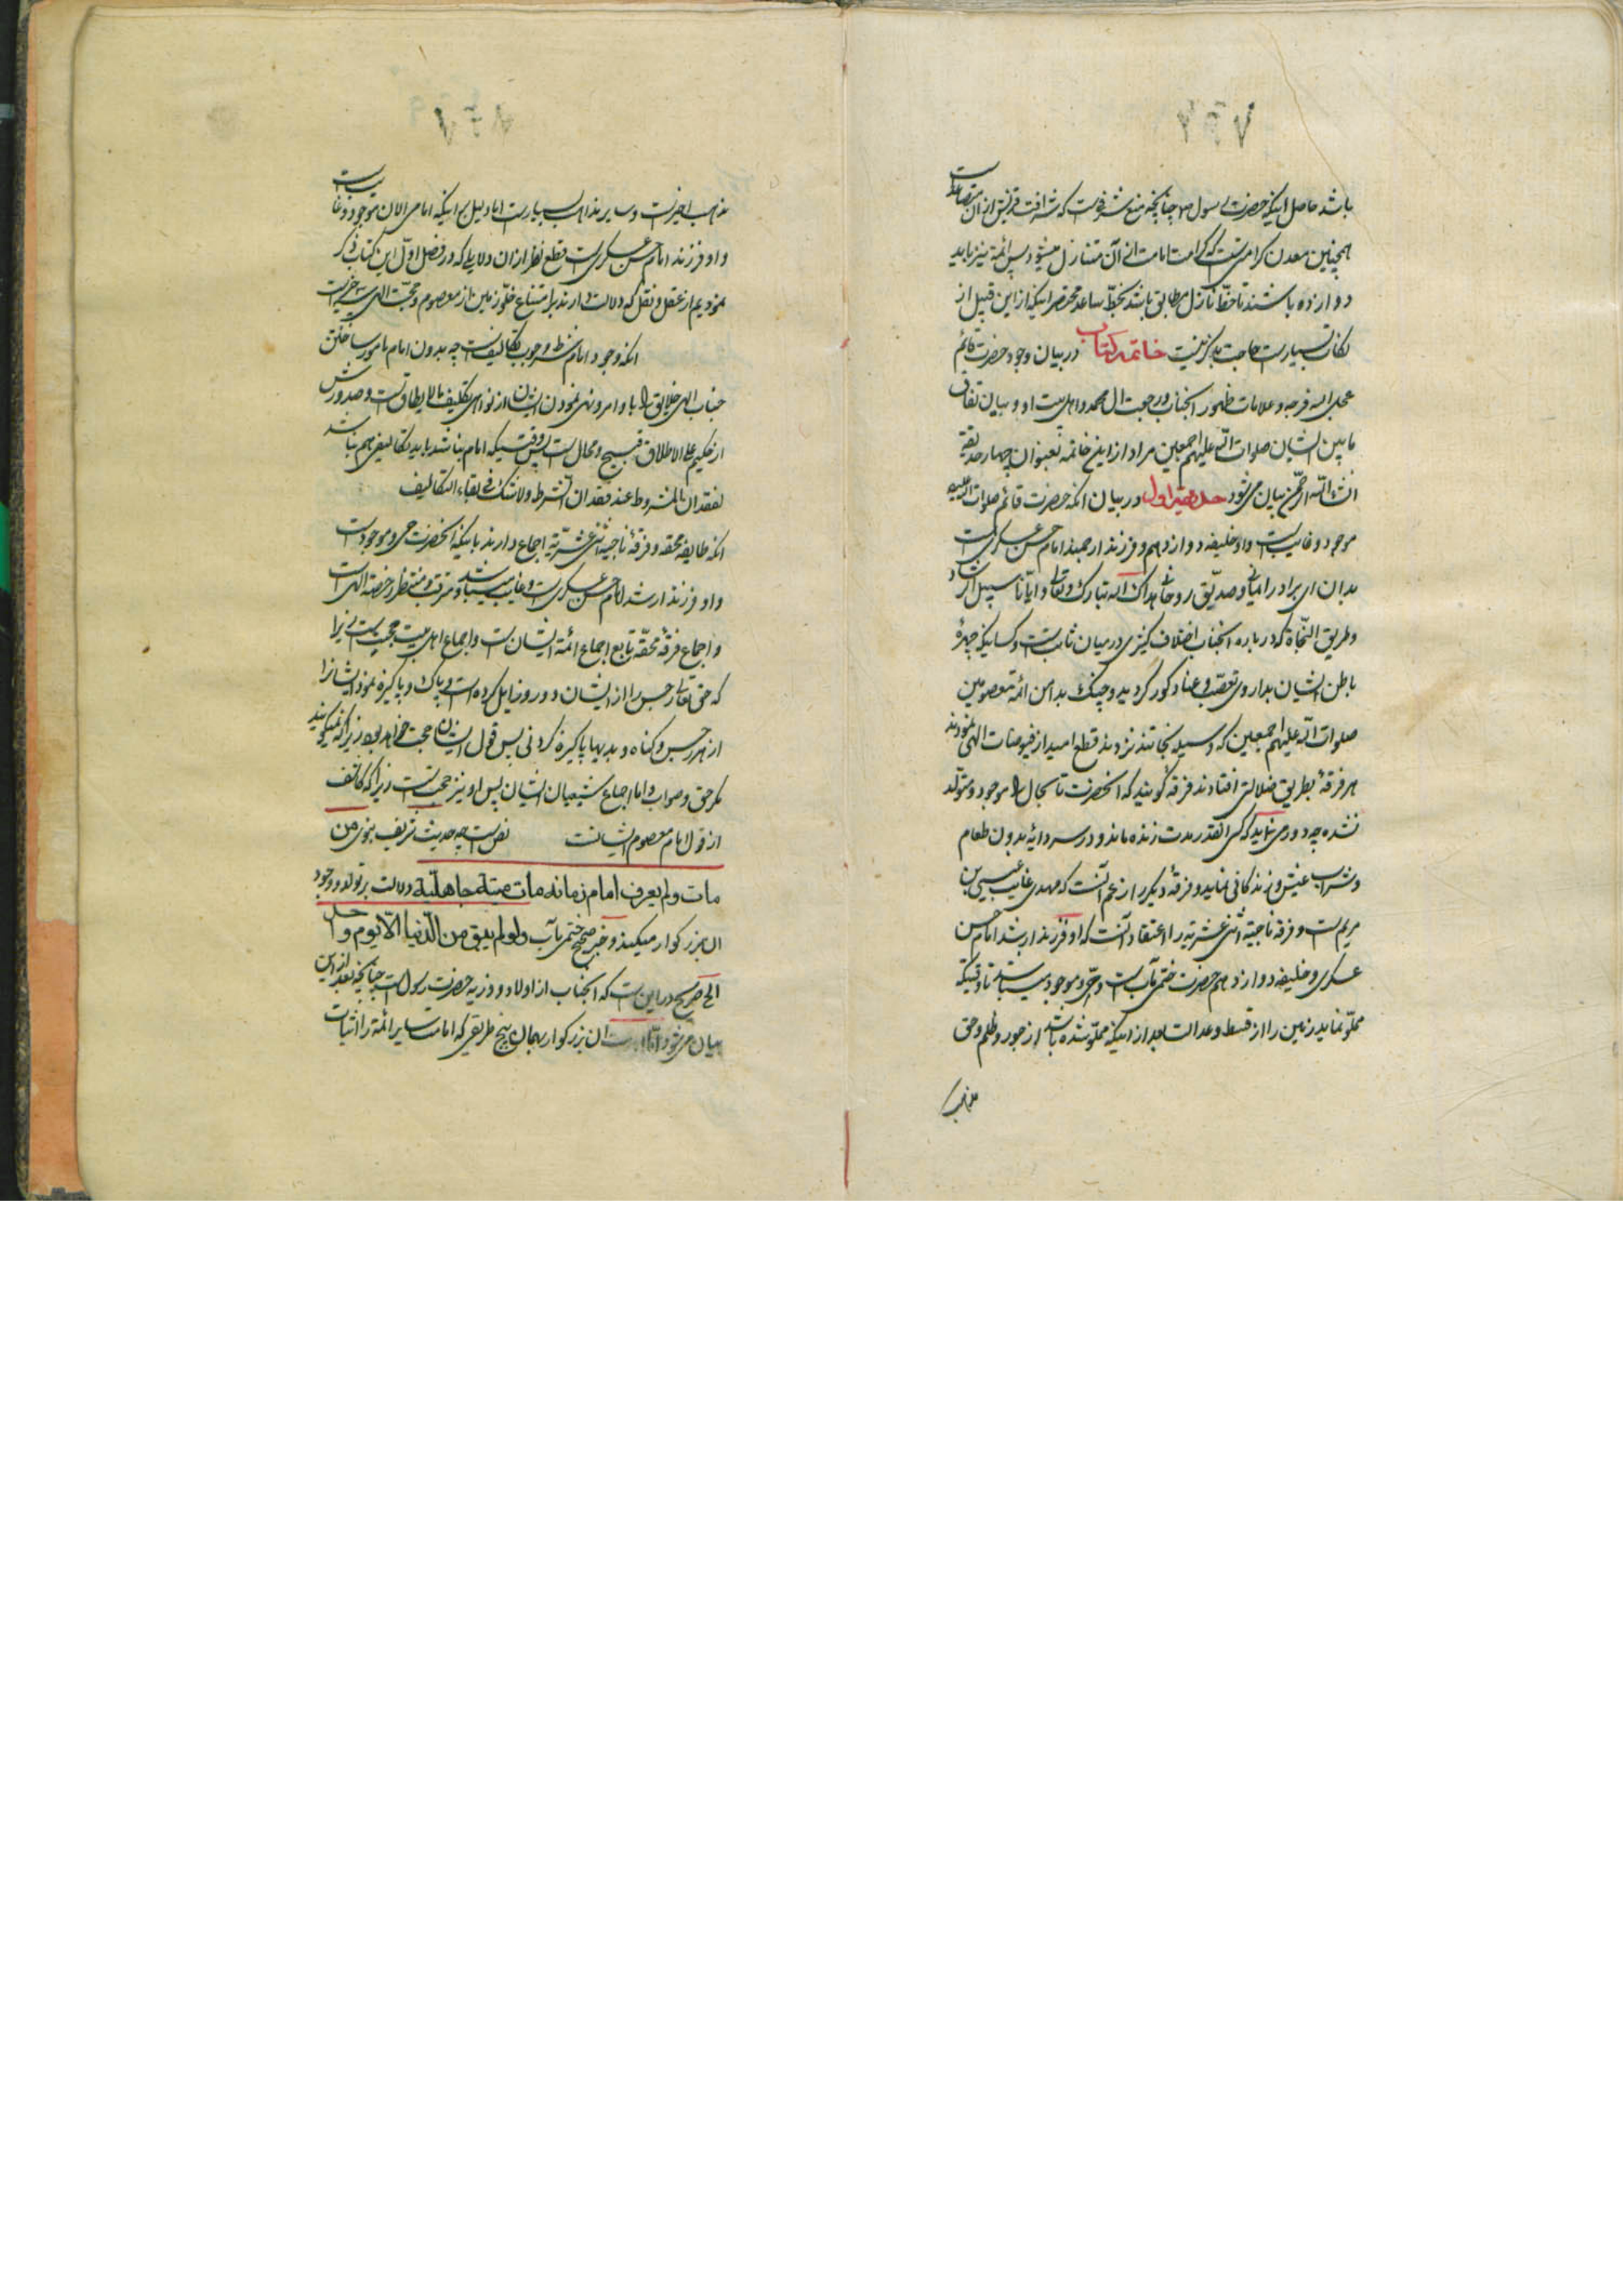 باشد حاصل اینکه حضرت رسول ص چنانچه منبع شرفیست که شرافت قریش از آن متصاعد است
همچنین معدن کرامتیست که کرامت امامت از آن متنازل میشود پس ائمه نیز باید
دوازده باشند تا خط نازل مطابق باشد بخط صاعد مختصر اینکه از این قبیل از
نکات بسیار است حاجت بذکر نیست خاتمه کتاب در بیان وجود حضرت قائم
عجل الله فرجه و علامات ظهور انجناب و رجعت ال محمد و اهل بیت او و بیان تفاوت
ما بین ایشان صلوات الله علیهم اجمعین مراد از این خاتمه بعنوان چهار حدیقه
انشاء الله الرحمن بیان می شود حدیقه اول در بیان انکه حضرت قائم صلوات الله علیه
موجود و غایب است و او خلیفه دوازدهم و فرزند ارجمند امام حسن عسکری است
بدان ای برادر ایمانی و صدیق روحانی هداک الله تبارک و تعالی و ایانا سبیل الرشاد
و طریق النجاة که در باره انجناب اختلاف کثیری در میان ثابتست و کسانیکه چهرهٔ
باطن ایشان بداروی تعصب و عناد کور گردیده و چنک بدامن ائمه معصومین
صلوات الله علیهم اجمعین که وسیله نجاتند نزدند قطع امید از فیوضات الهی نمودند
هر فرقهٔ بطریق ضلالتی افتادند فرقه گویند که انحضرت تا بحال موجود و متولد
نشده چه دور می نماید که کسی انقدر مدت زنده ماند و در سردابه بدون طعام
و شراب عیش و زندگانی نماید و فرقهٔ دیگر را زعم آنست که مهدی غایب عیسی بن
مریم است و فرقه ناجیهٔ اثنی عشریه را اعتقاد آنست که او فرزند ارشد امام حسن
عسکری و خلیفه دوازدهم حضرت ختمی مآب است و حی و موجود میباشد تا وقتیکه
مملو نماید زمین را از قسط و عدالت بعد از اینکه مملو شده باشد از جور و ظلم و حق
مذهب اخیر است و سایر مذاهب بسیار است اما دلیل بر اینکه امامی الان موجود و غایب است
و او فرزند امام حسن عسکری است قطع نظر از ان دلایلی که در فصل اول این کتاب ذکر
نمودیم از عقل و نقل که دلالت دارند بر امتناع خلو زمین از معصوم و حجت الهی
انکه وجود امام شرط وجوب تکالیف است چه بدون امام مامور ساختن
جناب الهی خلایق را باوامر و نهی نمودن ایشان از نواهی تکلیف مالایطاق است و صدورش
از حکیم علی الاطلاق قبیح و محال است پس وقتیکه امام نباشد باید تکالیفی هم نباشد
لفقدان المشروط عند فقدان الشرط ولا شک فی بقاء التکالیف
انکه طایفه محقه و فرقهٔ ناجیه اثنی عشریه اجماع دارند باینکه انحضرت حی و موجود است
و او فرزند ارشد امام حسن عسکری است و غایب میباشد و مترقب و منتظر رخصة الهی است
و اجماع فرقهٔ محقه تابع اجماع ائمهٔ ایشان است و اجماع اهل بیت حجت است زیرا
که حق تعالی رجس را از ایشان دور و زایل کرده است و پاک و پاکیزه نمود ایشانرا
از هر رجس و گناه و بدیها پاکیزه کردنی پس قول ایشان حجت خواهد بود زیرا که نمیگویند
مکر حق و صواب و اما اجماع شیعیان ایشان پس او نیز حجت است زیرا که کاشف
از قول امام معصوم ایشانست نص است چه حدیث شریف نبوی من
مات ولم یعرف امام زمانه مات میتة جاهلیة دلالت بر تولد و وجود
ان بزرکوار میکند و خبر صحیح ختمی مآب ولو لم یبق من الدنیا الا یوم واحد
الخ صریح در این است که انجناب از اولاد و ذریه حضرت رسول است چنانچه بعد از این
بیان می شود ان بزرکوار بهمان نهج طریقی که امامت سایر ائمه را اثبات